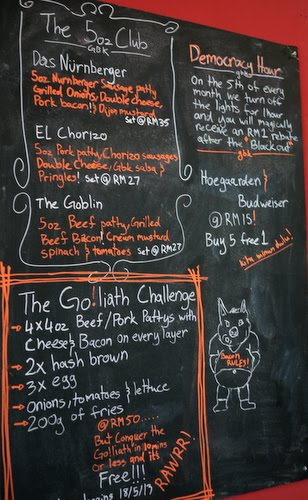 The 5oz Club
GBK
Das Nürnberger
5oz Nurnberger Sausage patty
Grilled Onions, Double cheese,
Pork bacon! & Dijon mustard
set @ RM35
EL Chorizo
5oz Pork patty, Chorizo sausages
Double Cheese, Gbk salsa &
Pringles! set @ RM27
The Goblin
5oz Beef patty, Grilled
Beef Bacon! Cream mustard
spinach & tomatoes set @ RM27
The Go!liath Challenge
4x4oz Beef/Pork Pattys with
Cheese & Bacon on every layer
2x hash brown
3x egg
Onions, tomatoes & lettuce
200g of fries
@RM50.....
But Conquer the
Go!liath in 10mins
or less and its
Free!!!
RAWRR!
begins 18/5/13
Democracy Hour
gbk
On the 5th of every
month, we turn off
the lights for 1hour
and you will magically
receive an RM1 rebate
after the "Blackout"
gbk
Hoegaarden &
Budweiser
@ RM15!
Buy 5 free 1
kita minum dulu!
Bacon
RULES!